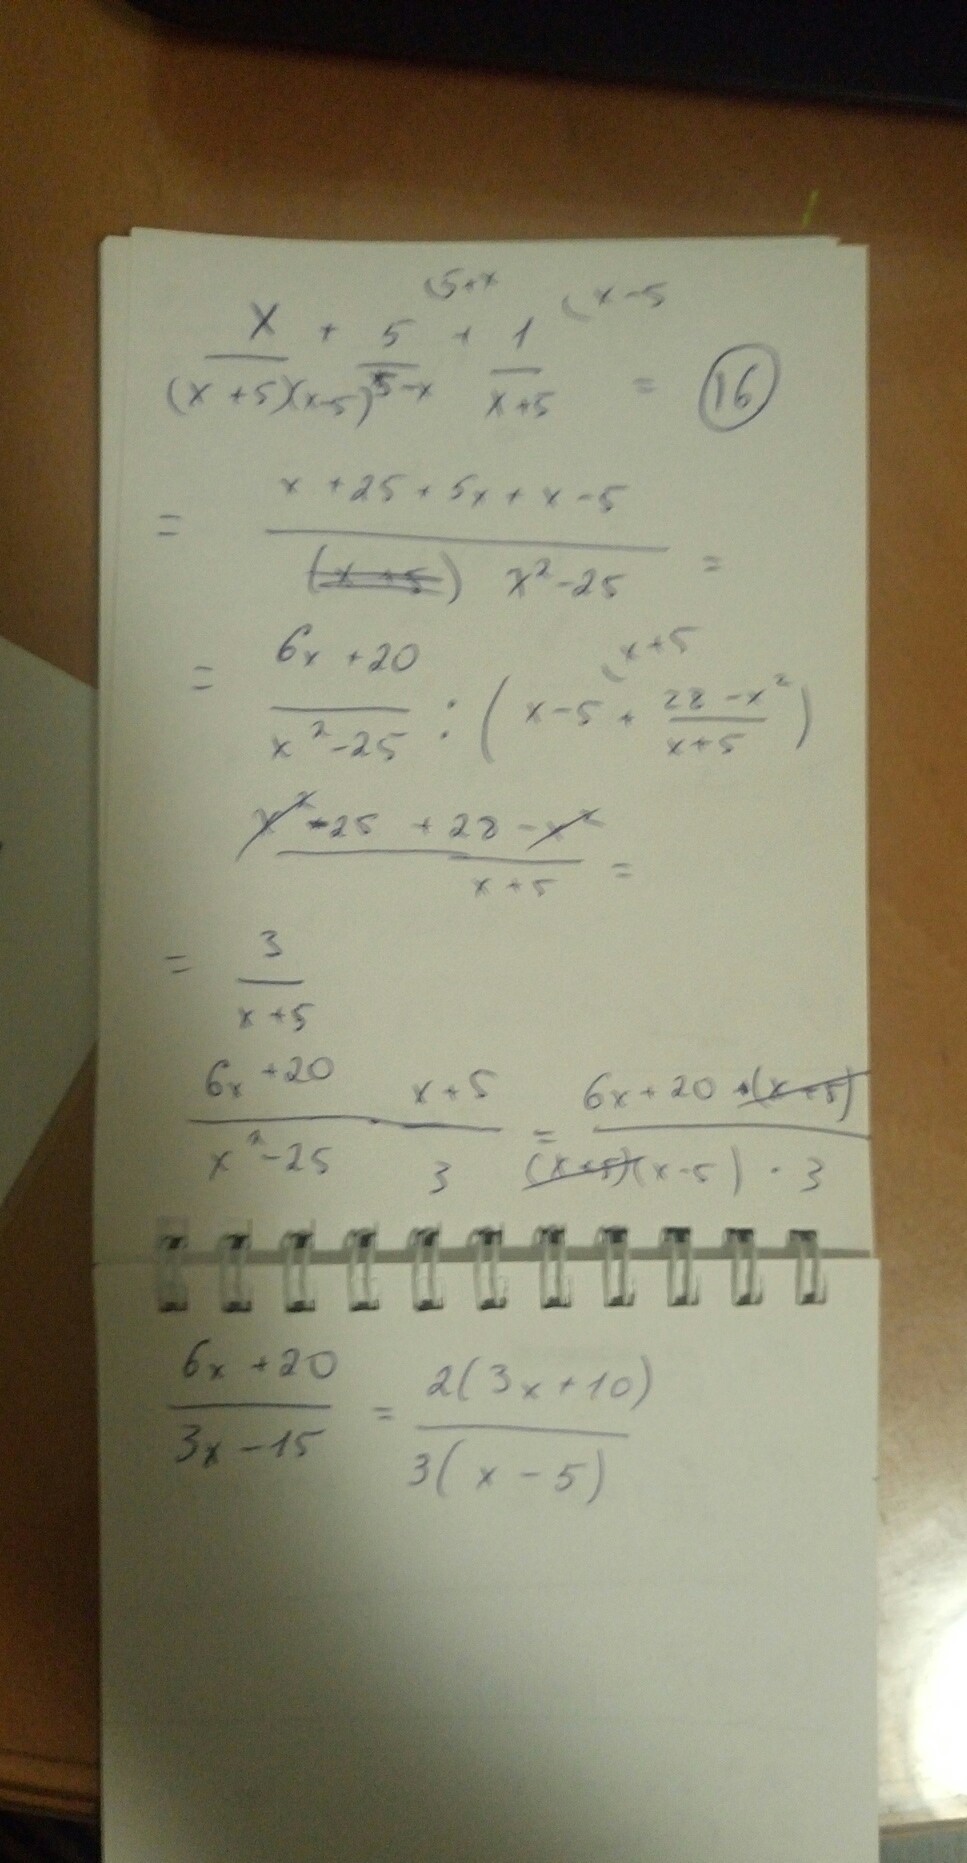 (5+x (x-5
x/((x+5)(x-5)) + 5/(5-x) + 1/(x+5) = (16)
= (x+25+5x+x-5)/(x²-25) =
(x+5
= (6x+20)/(x²-25) : (x-5 + (28-x²)/(x+5))
(x²-25+28-x²)/(x+5) =
= 3/(x+5)
(6x+20)/(x²-25) · (x+5)/3 = (6x+20·(x+5))/((x+5)(x-5)·3)
(6x+20)/(3x-15) = 2(3x+10)/(3(x-5))